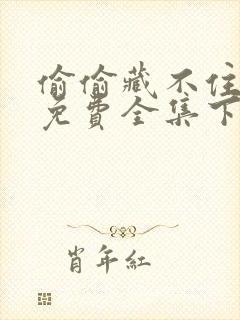 偷偷藏不住
免費全集下
肖年紅